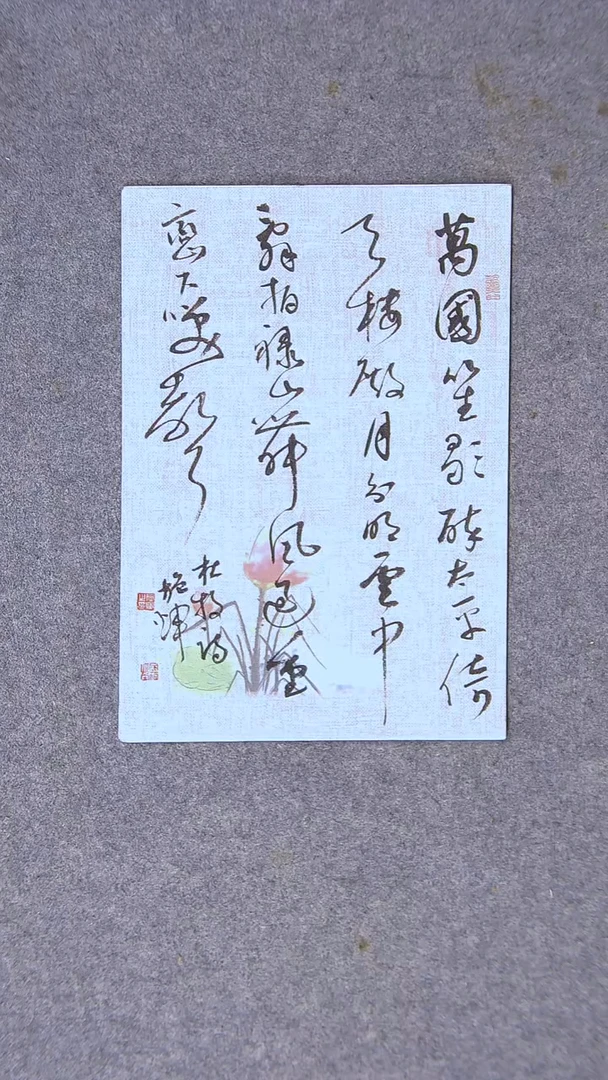 萬國笙歌醉太平倚
天樓殿月分明雲中
亂拍祿山舞風過重
巒下笑聲
杜牧詩
施